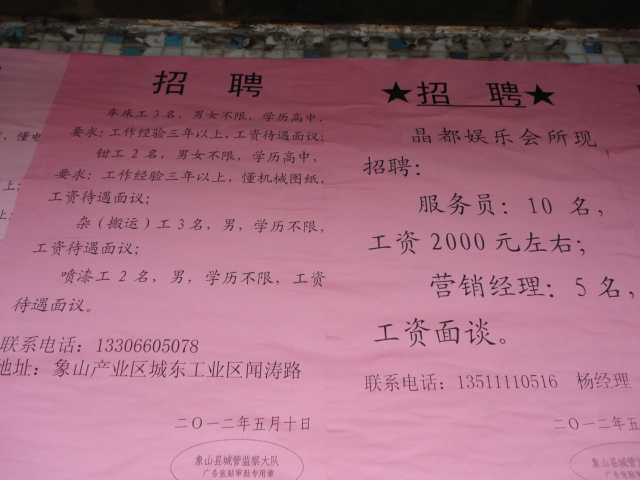 招 聘
车床工3名，男女不限，学历高中，
要求：工作经验三年以上，工资待遇面议；
钳工2名，男女不限，学历高中，
要求：工作经验三年以上，懂机械图纸，
工资待遇面议；
杂（搬运）工3名，男，学历不限，
工资待遇面议；
喷漆工2名，男，学历不限，工资
待遇面议。
联系电话：13306605078
地址：象山产业区城东工业区闻涛路
二〇一二年五月十日
象山县城管监察大队
广告张贴审批专用章
★招 聘★
晶都娱乐会所现
招聘：
服务员：10名，
工资2000元左右；
营销经理：5名，
工资面谈。
联系电话：13511110516 杨经理
二〇一二年五
象山县城管监
广告张贴审批